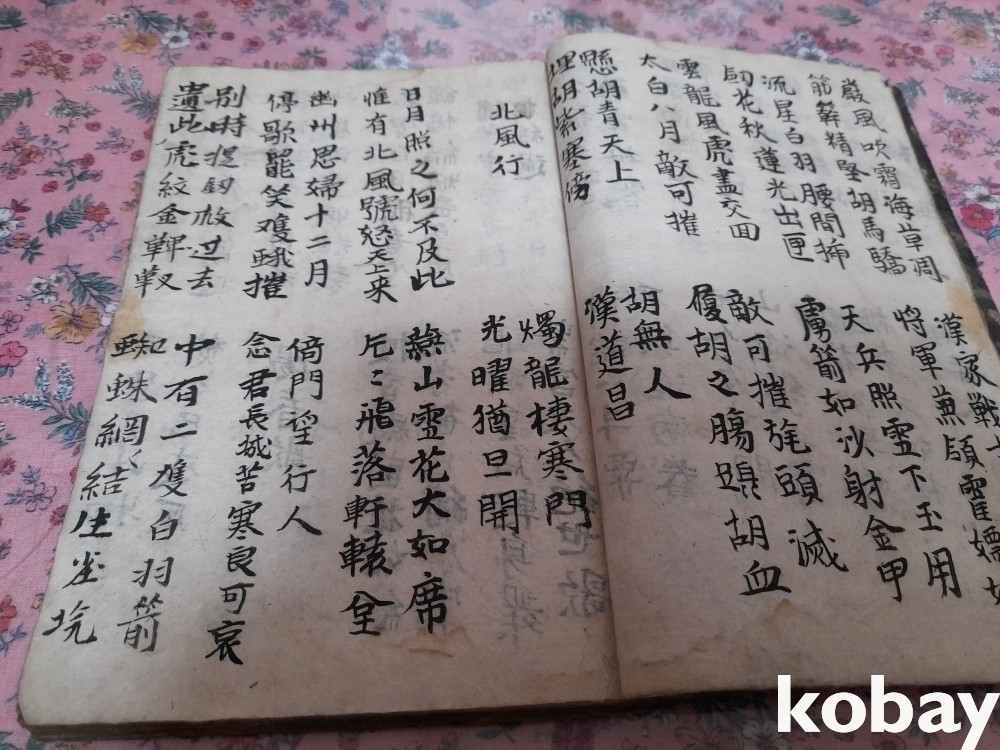 嚴風吹霜海草凋
筋簳精堅胡馬驕
漢家戰士
將軍兼領霍嫖姚
流星白羽腰間揷
釰花秋蓮光出匣
天兵照雪下玉用
虜箭如沙射金甲
雲龍風虎盡交囬
太白八月敵可摧
敵可摧旄頭滅
履胡之腸 胡血
懸胡青天上
埋胡紫寒傍
胡無人
漢道昌
北風行
燭龍棲寒門
光曜猶旦開
日月照之何不及此
惟有北風號怒天上来
燕山雪花大如席
片〻飛落軒轅
幽州思婦十二月
停歌罷笑雙蛾摧
倚門望行人
念君長城苦寒良可哀
別時提釰救过去
遺此虎紋金鞞靫
中有二隻白羽箭
蜘蛛網結生